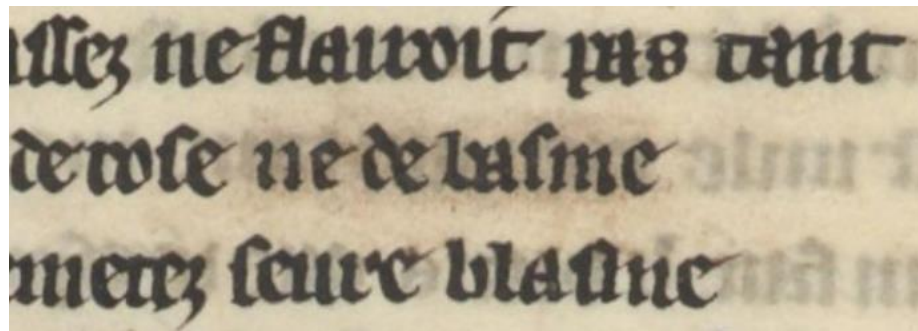 assez ne flairoit pas tant
de rose ne de basme
metez seure blasme